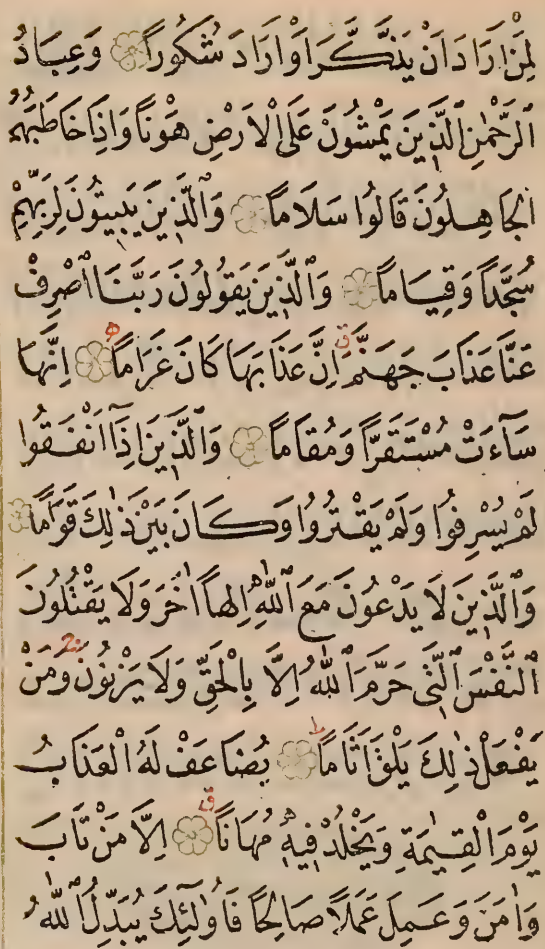 لِمَنْ اَرَادَ اَنْ يَذَّكَّرَ اَوْ اَرَادَ شُكُوراً وَعِبَادُ
الرَّحْمٰنِ الَّذٖينَ يَمْشُونَ عَلَى الْاَرْضِ هَوْناً وَاِذَا خَاطَبَهُمُ
الْجَاهِلُونَ قَالُوا سَلَاماً وَالَّذٖينَ يَبٖيتُونَ لِرَبِّهِمْ
سُجَّداً وَقِيَاماً وَالَّذٖينَ يَقُولُونَ رَبَّنَا اصْرِفْ
عَنَّا عَذَابَ جَهَنَّمَ ق اِنَّ عَذَابَهَا كَانَ غَرَاماً اِنَّهَا
سَآءَتْ مُسْتَقَرّاً وَمُقَاماً وَالَّذٖينَ اِذَٓا اَنْفَقُوا
لَمْ يُسْرِفُوا وَلَمْ يَقْتُرُوا وَكَانَ بَيْنَ ذٰلِكَ قَوَاماً
وَالَّذٖينَ لَا يَدْعُونَ مَعَ اللّٰهِ اِلٰهاً اٰخَرَ وَلَا يَقْتُلُونَ
النَّفْسَ الَّتٖى حَرَّمَ اللّٰهُ اِلَّا بِالْحَقِّ وَلَا يَزْنُونَ وَمَنْ
يَفْعَلْ ذٰلِكَ يَلْقَ اَثَاماً ط يُضَاعَفْ لَهُ الْعَذَابُ
يَوْمَ الْقِيٰمَةِ وَيَخْلُدْ فٖيهٖ مُهَاناً ق اِلَّا مَنْ تَابَ
وَاٰمَنَ وَعَمِلَ عَمَلاً صَالِحاً فَاُولٰٓئِكَ يُبَدِّلُ اللّٰهُ